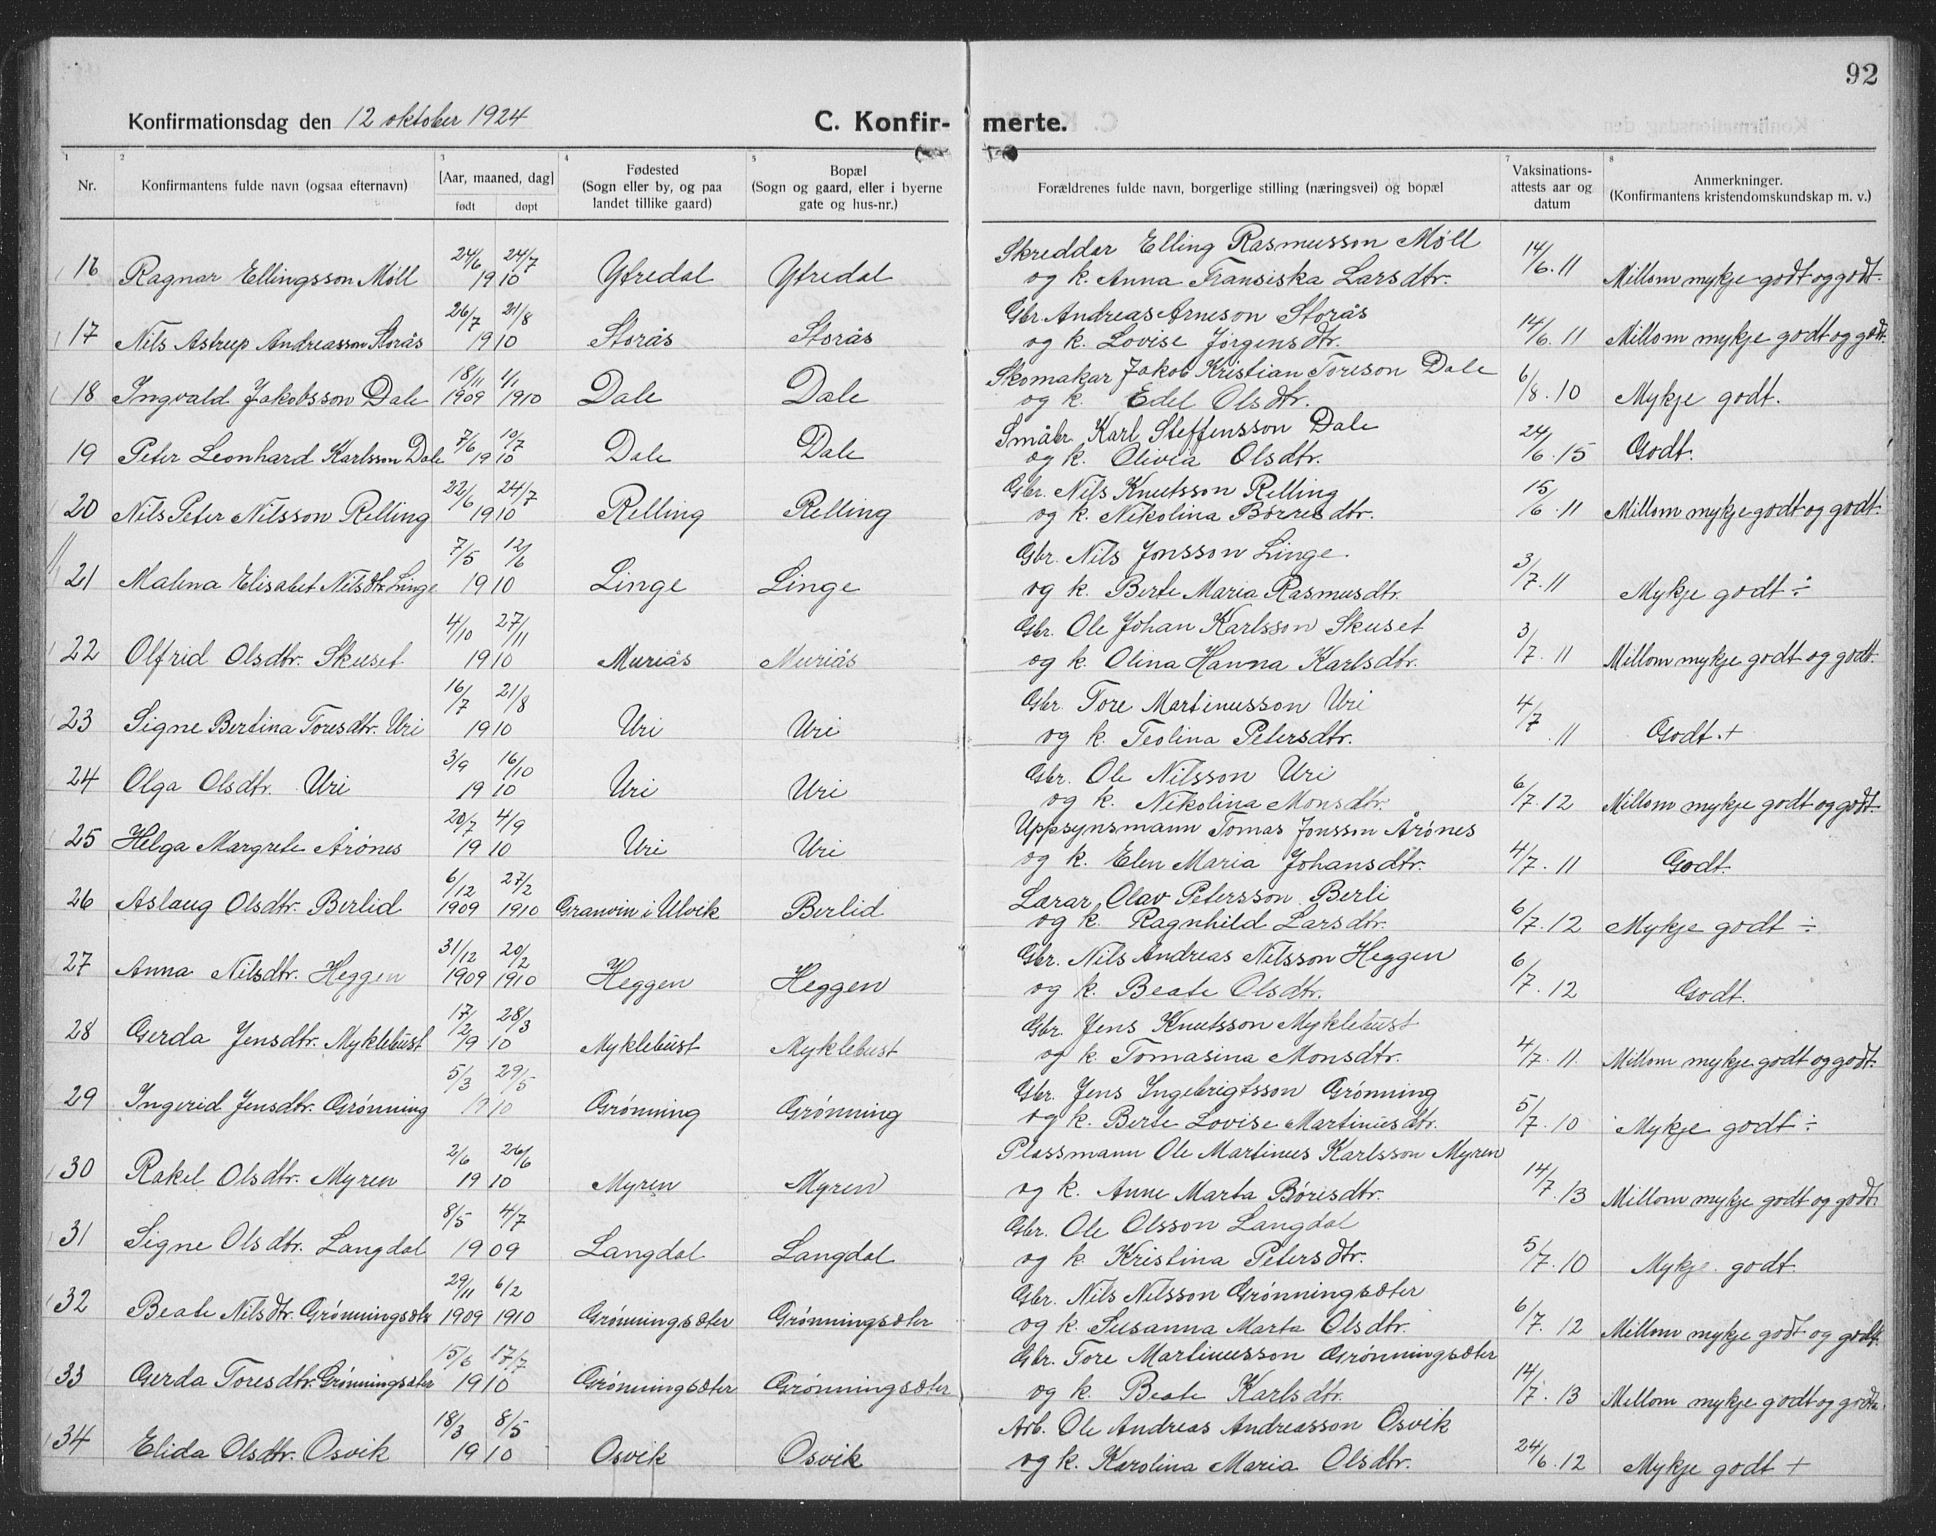 92
Konfirmationsdag den 12 oktober 1924 C. Konfir- merte.
1 2 3 4 5 7 8
Nr. Konfirmantens fulde navn (ogsaa efternavn) [Aar, maaned, dag] født døpt Fødested (Sogn eller by, og paa landet tillike gaard) Bopæl (Sogn og gaard, eller i byerne gate og hus-nr.) Forældrenes fulde navn, borgerlige stilling (næringsvei) og bopæl Vaksinations-attests aar og datum Anmerkninger. (Konfirmantens kristendomskundskap m. v.)
24/6 24/7 Skreddar Elling Rasmusson Möll 14/6.11
16 Ragnar Ellingsson Möll 1910 Yfredal Yfredal og k. Anna Fransiska Larsdtr. Millom mykje godt og godt.
26/7 21/8 Gbr. Andreas Arneson Storås 14/6.11
17 Nils Astrup Andreasson Storås 1910 Storås Storås og k. Lovise Jörgensdtr. Millom mykje godt og godt.
18/11 1/1 Skomakar Jakob Kristian Toreson Dale 6/8.10
18 Ingvald Jakobsson Dale 1909 1910 Dale Dale og k. Edel Olsdtr. Mykje godt.
7/6 10/7 Småbr. Karl Steffensson Dale 24/6.15
19 Peter Leonhard Karlsson Dale 1910 Dale Dale og k. Olivia Olsdtr. Godt.
22/6 24/7 Gbr. Nils Knutsson Relling 15/6.11
20 Nils Peter Nilsson Relling 1910 Relling Relling og k. Nikolina Börresdtr. Millom mykje godt og godt.
7/5 12/6 Gbr. Nils Jonsson Linge. 3/7.11
21 Malena Elisabet Nilsdtr. Linge 1910 Linge Linge og k. Berte Maria Rasmusdtr. Mykje godt ÷
4/10 27/11 Gbr. Ole Johan Karlsson Skuset 3/7.11
22 Olfrid Olsdtr. Skuset 1910 Muriås Muriås og k. Olina Hanna Karlsdtr. Millom mykje godt og godt.
16/7 21/8 Gbr. Tore Martinusson Uri 4/7.11
23 Signe Bertina Toresdtr. Uri 1910 Uri Uri og k. Teolina Petersdtr. Godt. +
3/9 16/10 Gbr. Ole Nilsson Uri 6/7.12
24 Olga Olsdtr. Uri 1910 Uri Uri og k. Nikolina Monsdtr. Millom mykje godt og godt.
20/7 4/9 Uppsynsmann Tomas Jonsson Årönes 4/7.11
25 Helga Margrete Årönes 1910 Uri Uri og k. Elen Maria Johansdtr. Godt.
6/12 27/2 Lærar Olav Petersson Berli 6/7.12
26 Aslaug Olsdtr. Berlid 1909 1910 Granvin i Ulvik Berlid og k. Ragnhild Larsdtr. Mykje godt ÷
31/12 20/2 Gbr. Nils Andreas Nilsson Heggen 6/7.12
27 Anna Nilsdtr. Heggen 1909 1910 Heggen Heggen og k. Beate Olsdtr. Godt.
17/2 28/3 Gbr. Jens Knutsson Myklebust 4/7.11
28 Gerda Jensdtr. Myklebust 1910 Myklebust Myklebust og k. Tomasina Monsdtr. Millom mykje godt og godt.
5/3 29/5 Gbr. Jens Ingebrigtsson Grönning 5/7.10
29 Ingerid Jensdtr. Grönning 1910 Grönning Grönning og k. Berte Lovise Martinusdtr. Mykje godt ÷
2/6 26/6 Plassmann Ole Martinus Karlsson Myren 14/7.13
30 Rakel Olsdtr. Myren 1910 Myren Myren og k. Anne Marta Böresdtr. Millom mykje godt og godt.
8/5 4/7 Gbr. Ole Olsson Langdal 5/7.10
31 Signe Olsdtr. Langdal 1909 Langdal Langdal og k. Kristina Petersdtr. Mykje godt.
29/11 6/2 Gbr. Nils Nilsson Grönningsæter 6/7.12
32 Beate Nilsdtr. Grönningsæter 1909 1910 Grönningsæter Grönningsæter og k. Susanna Marta Olsdtr. Millom mykje godt og godt.
15/6 17/7 Gbr. Tore Martinusson Grönningsæter 14/7.13
33 Gerda Toresdtr. Grönningsæter 1910 Grönningsæter Grönningsæter og k. Beate Karlsdtr. Millom mykje godt og godt.
18/3 8/5 Arb. Ole Andreas Andreasson Osvik 24/6.12
34 Elida Olsdtr. Osvik 1910 Osvik Osvik og k. Karolina Maria Olsdtr. Mykje godt +